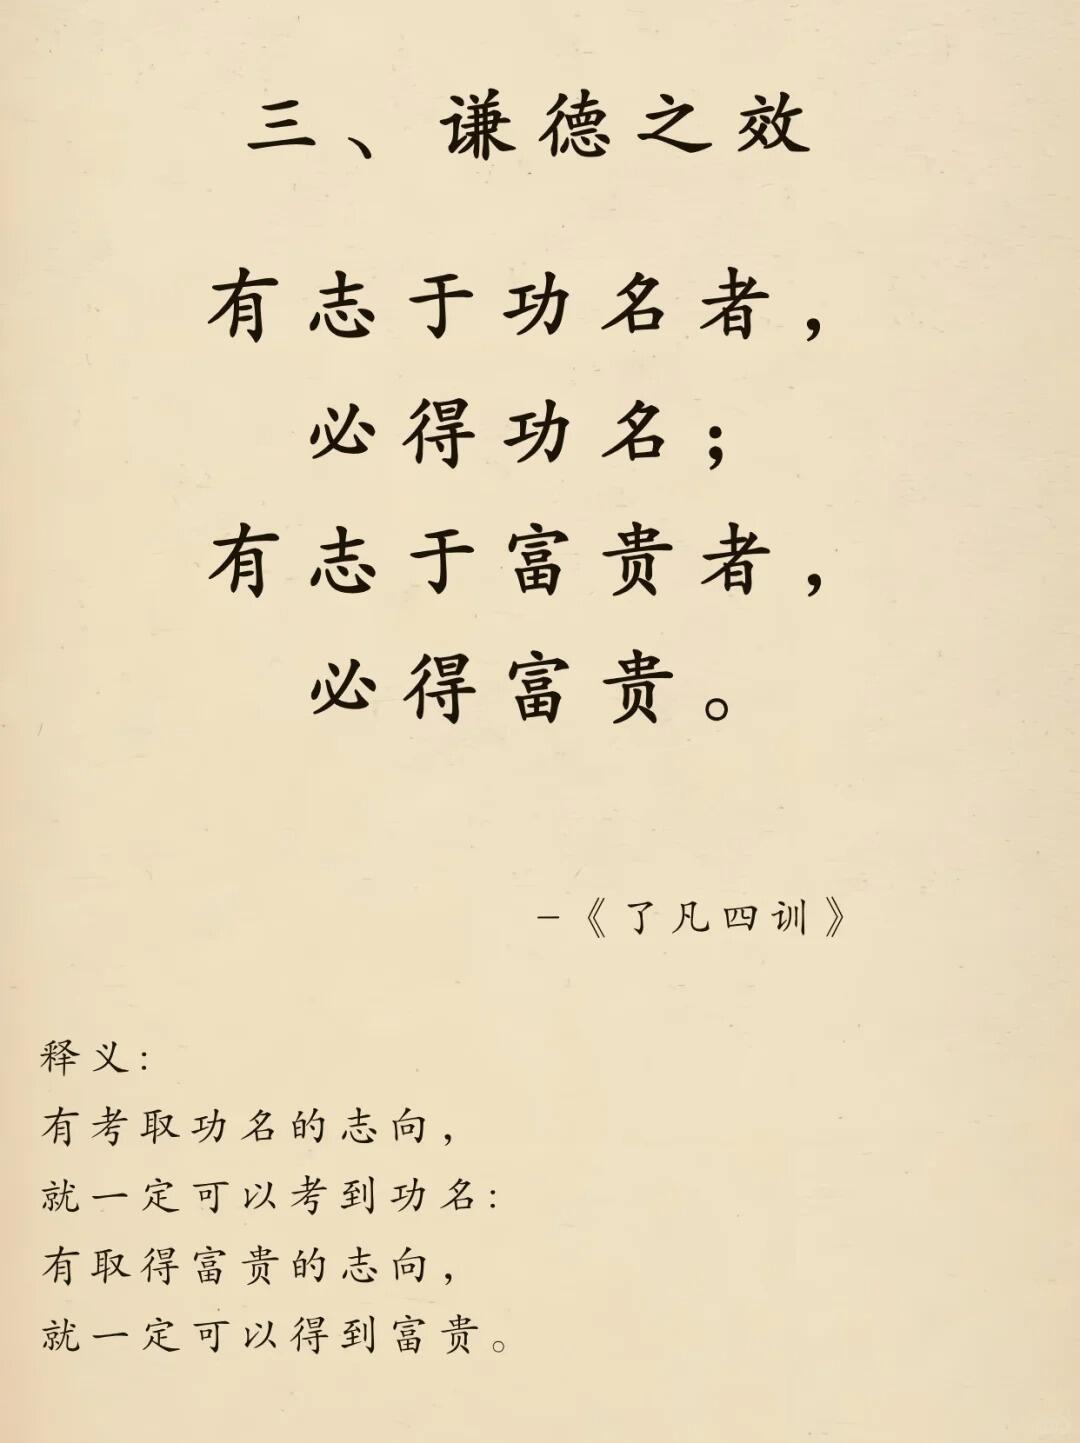 三、谦德之效
有志于功名者，
必得功名；
有志于富贵者，
必得富贵。
–《了凡四训》
释义：
有考取功名的志向，
就一定可以考到功名：
有取得富贵的志向，
就一定可以得到富贵。